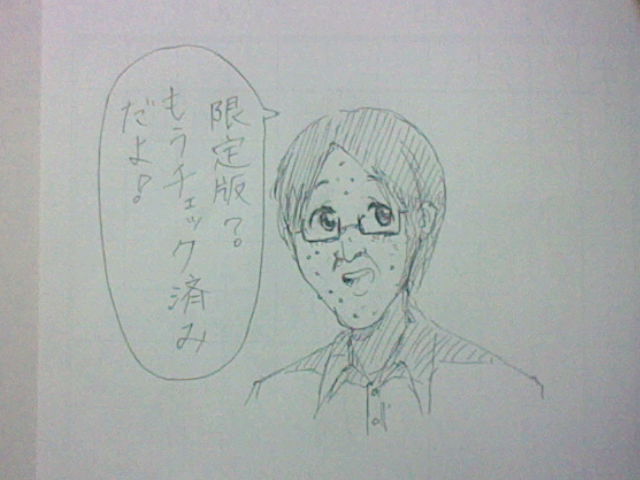 限定版?
もうチェック済み
だよ!